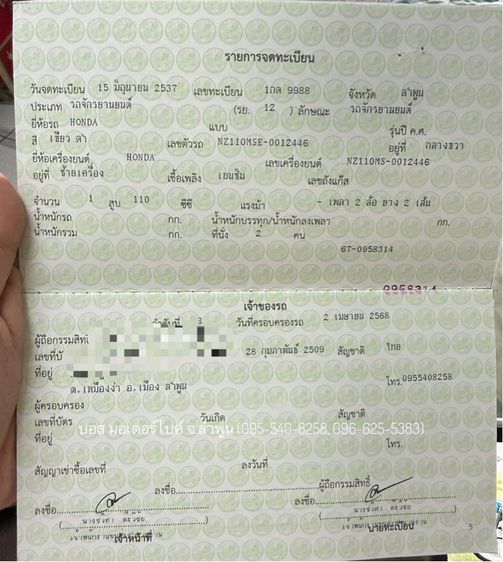 รายการจดทะเบียน
วันจดทะเบียน 15 มิถุนายน 2537 เลขทะเบียน 1กด 9988 จังหวัด ลำพูน
ประเภท รถจักรยานยนต์ (รย. 12 ) ลักษณะ รถจักรยานยนต์
ยี่ห้อรถ HONDA แบบ รุ่นปี ค.ศ.
สี เขียว ดำ เลขตัวรถ NZ110MSE-0012446 อยู่ที่ กลางขวา
ยี่ห้อเครื่องยนต์ HONDA เลขเครื่องยนต์ NZ110MS-0012446
อยู่ที่ ซ้ายเครื่อง เชื้อเพลิง เบนซิน เลขถังแก๊ส
จำนวน 1 สูบ 110 ซีซี แรงม้า - เพลา 2 ล้อ ยาง 2 เส้น
น้ำหนักรถ กก. น้ำหนักบรรทุก/น้ำหนักลงเพลา กก.
น้ำหนักรวม กก. ที่นั่ง 2 คน
67-0958314
0958314
เจ้าของรถ
ลำดับที่ 3 วันที่ครอบครองรถ 2 เมษายน 2568
ผู้ถือกรรมสิทธิ์
เลขที่บั 28 กุมภาพันธ์ 2509 สัญชาติ ไทย
ที่อยู่
ต.เหมืองง่า อ.เมือง ลำพูน โทร.0955408258
ผู้ครอบครอง
เลขที่บัตร วันเกิด สัญชาติ
บอส มอเตอร์ไบค์ จ.ลำพูน (095-540-8258, 096-625-5383)
ที่อยู่ โทร.
สัญญาเช่าซื้อเลขที่ ลงวันที่
ลงชื่อ ผู้ถือกรรมสิทธิ์
ลงชื่อ ลงชื่อ
เจ้าหน้าที่ นายทะเบียน
5